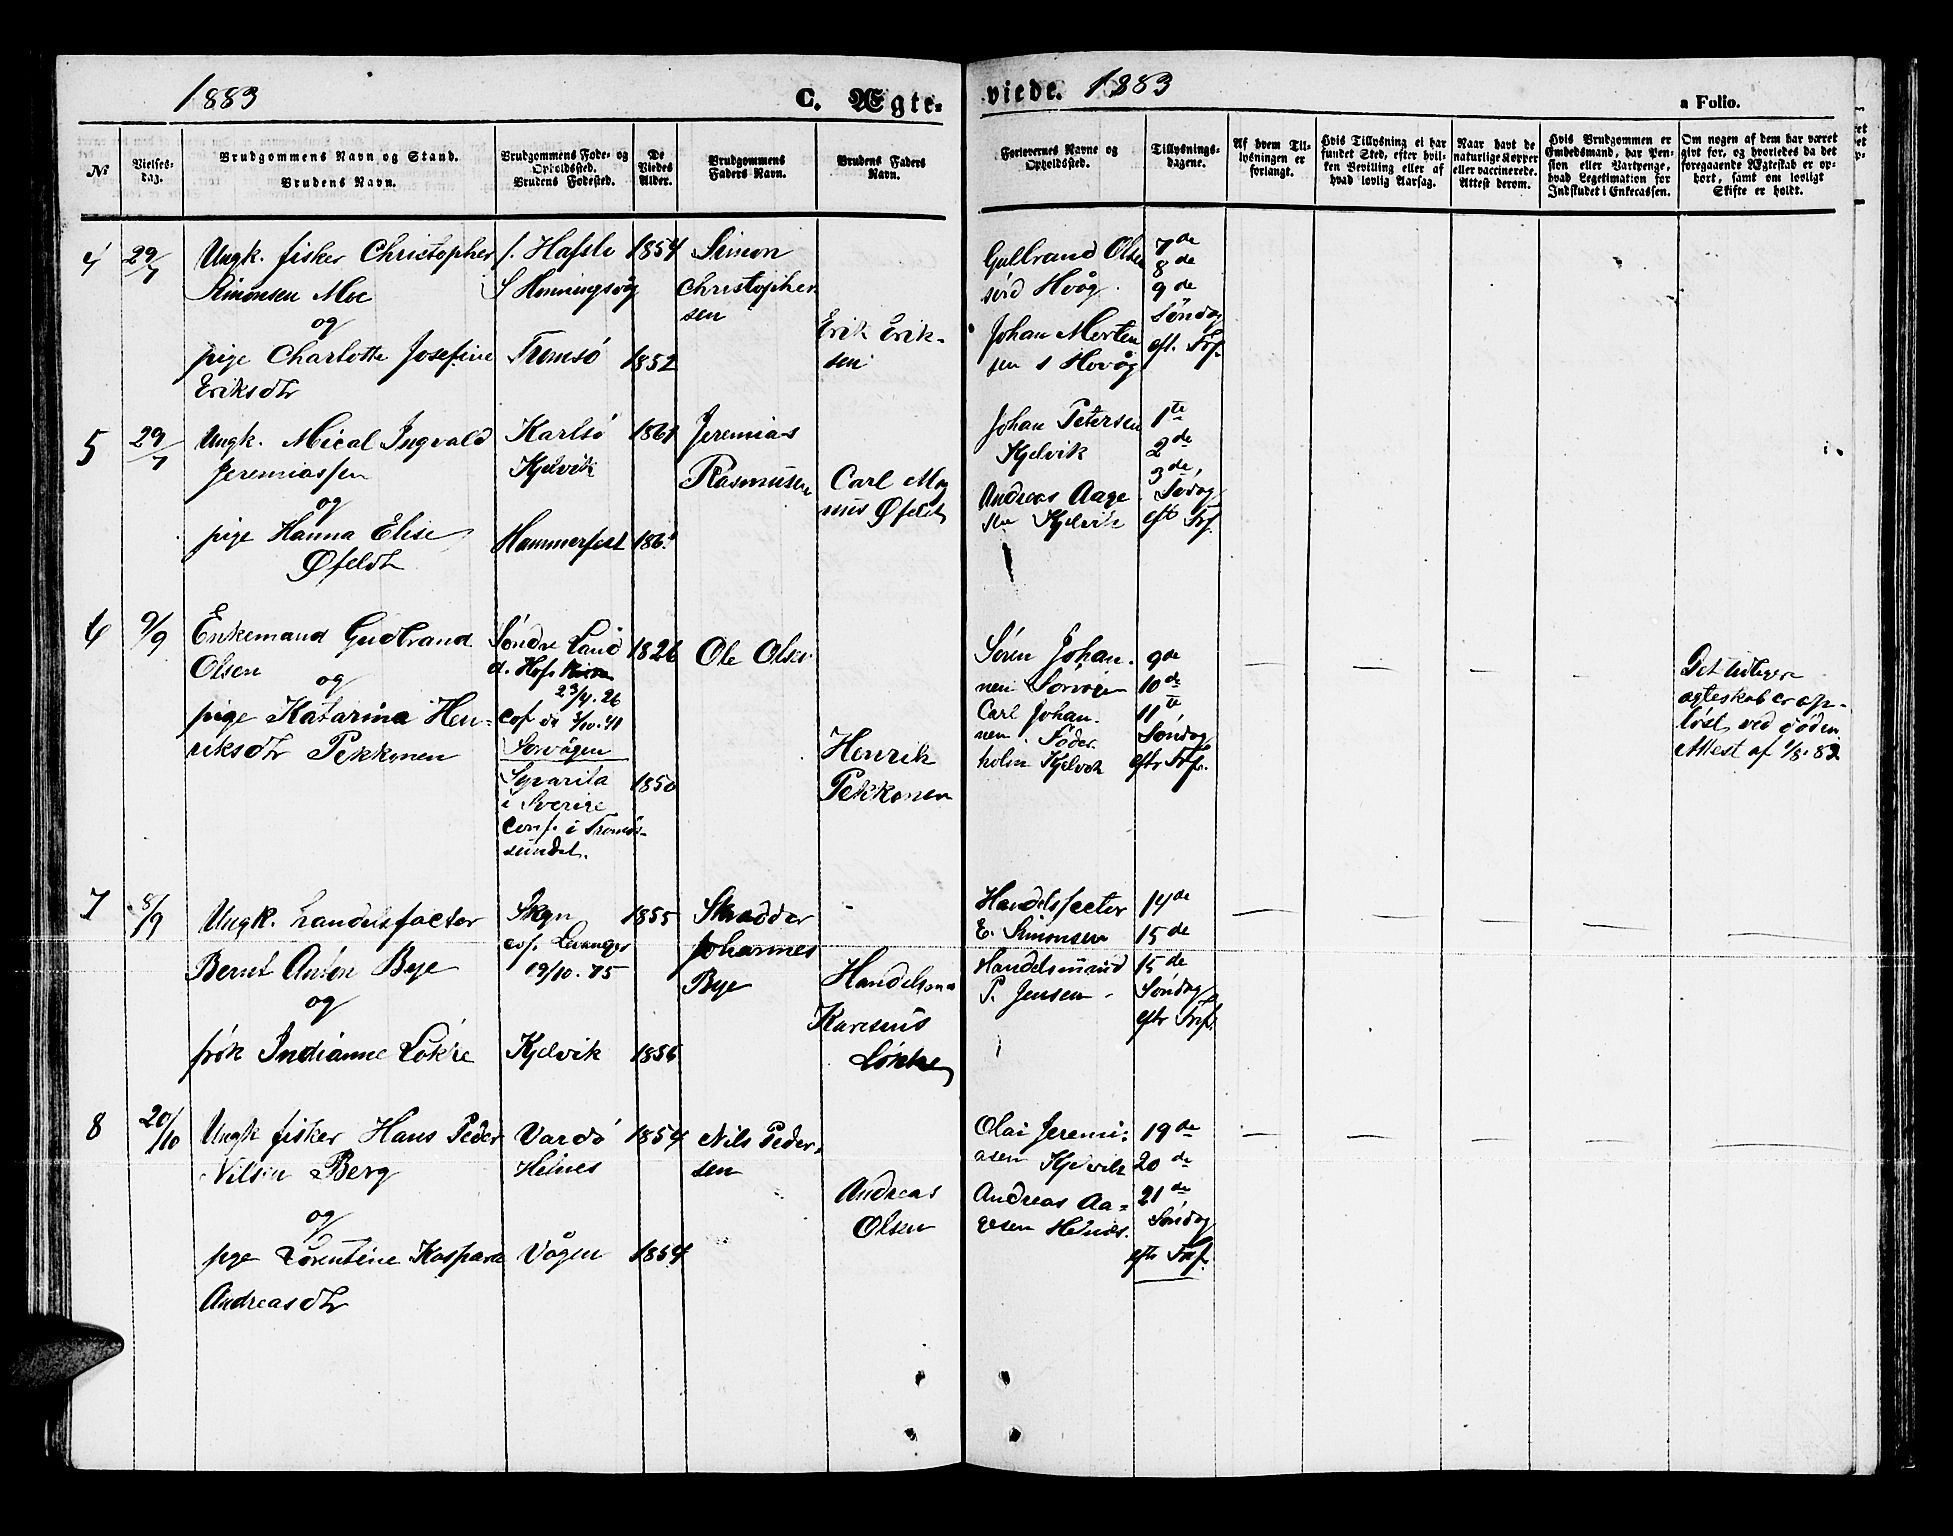 1883
C. Ægte-
viede.
1883
a Folio.
No
Vielses-
dag.
Brudgommens Navn og Stand.
Brudens Navn.
Brudgommens Føde- og
Opholdssted.
Brudens Fødested.
De
Viedes
Alder.
Brudgommens
Faders Navn.
Brudens Faders
Navn.
Forlovernes Navne og
Opholdssted.
Tillysnings-
dagene.
Af hvem Til-
lysningen er
forlangt.
Hvis Tillysning ei har
fundet Sted, efter hvil-
ken Bevilling eller af
hvad lovlig Aarsag.
Naar havt de
naturlige Kopper
eller vaccinerede.
Attest derom.
Hvis Brudgommen er
Embedsmand, har Pen-
sion eller Vartpenge,
hvad Legitimation for
Indskudet i Enkecassen.
Om nogen af dem har været
givt før, og hvorledes da det
foregaaende Ægteskab er op-
hørt, samt om lovligt
Skifte er holdt.
4
29/7
Ungk. fisker Christopher
Simonsen Moe
og
pige Charlotte Josefine
Eriksdtr
f. Hafslo
S Honningsvåg
Tromsø
1854
1852
Simon
Christopher
sen
Erik Erik-
sen
Gulbrand Olsen
Johan Morten
sen
7de
8de
9de
Søndag
eft. Trf.
5
29/7
Ungk. Mical Ingvald
Jeremiassen
og
pige Hanna Elise
Øfeldt
Karlsø
Kjelvik
Hammerfest
1861
Jeremias
Rasmusen
Carl Mag
nus Øfeldt
Johan Petersen
Kjelvik
Andreas Aage
sen Kjelvik
1te
2de
3de
Søndag
eft Trf.
6
9/9
Enkemand Gudbrand
Olsen
og
pige Katarina Hen-
riksdtr Pekkonen
Søndre Land
d. Hofs
23/4. 26
cof do 3/10. 41
Sorvågen
i Sverige
conf. i Tromsø-
sundet.
1826
1850
Ole Olsen
Henrik
Pekkonen
Søren Johan-
nen Sorvågen
Carl Johan-
nen
holm Kjelvik
9de
10de
11te
Søndag
eftr Trf.
Det tidligere
ægteskab er op-
løst ved døden
Attest af 1/8. 83
7
8/9
Ungk. handelsfactor
Bernt Anton Bye
og
frøk Indianne Løkke
Skgn
cof. Levanger
19/10. 75
Kjelvik
1855
1856
Skrædder
Johannes
Bye
Handelsm
Karenius
Løkke
Handelsfactor
E. Simonsen
Handelsmand
P. Jensen
14de
15de
15de
Søndag
eftr Trf.
8
20/10
Ungk fisker Hans Peder
Nilsen Berg
og
pige Lorentine Kaspara
Andreasdtr
Vardø
Helnes
Vågen
1854
1854
Nils Peder-
sen
Andreas
Olsen
Olai Jeremi-
asen Kjelvik
Andreas Aa-
gesen Helnes.
19de
20de
21de
Søndag
eftr Trf.